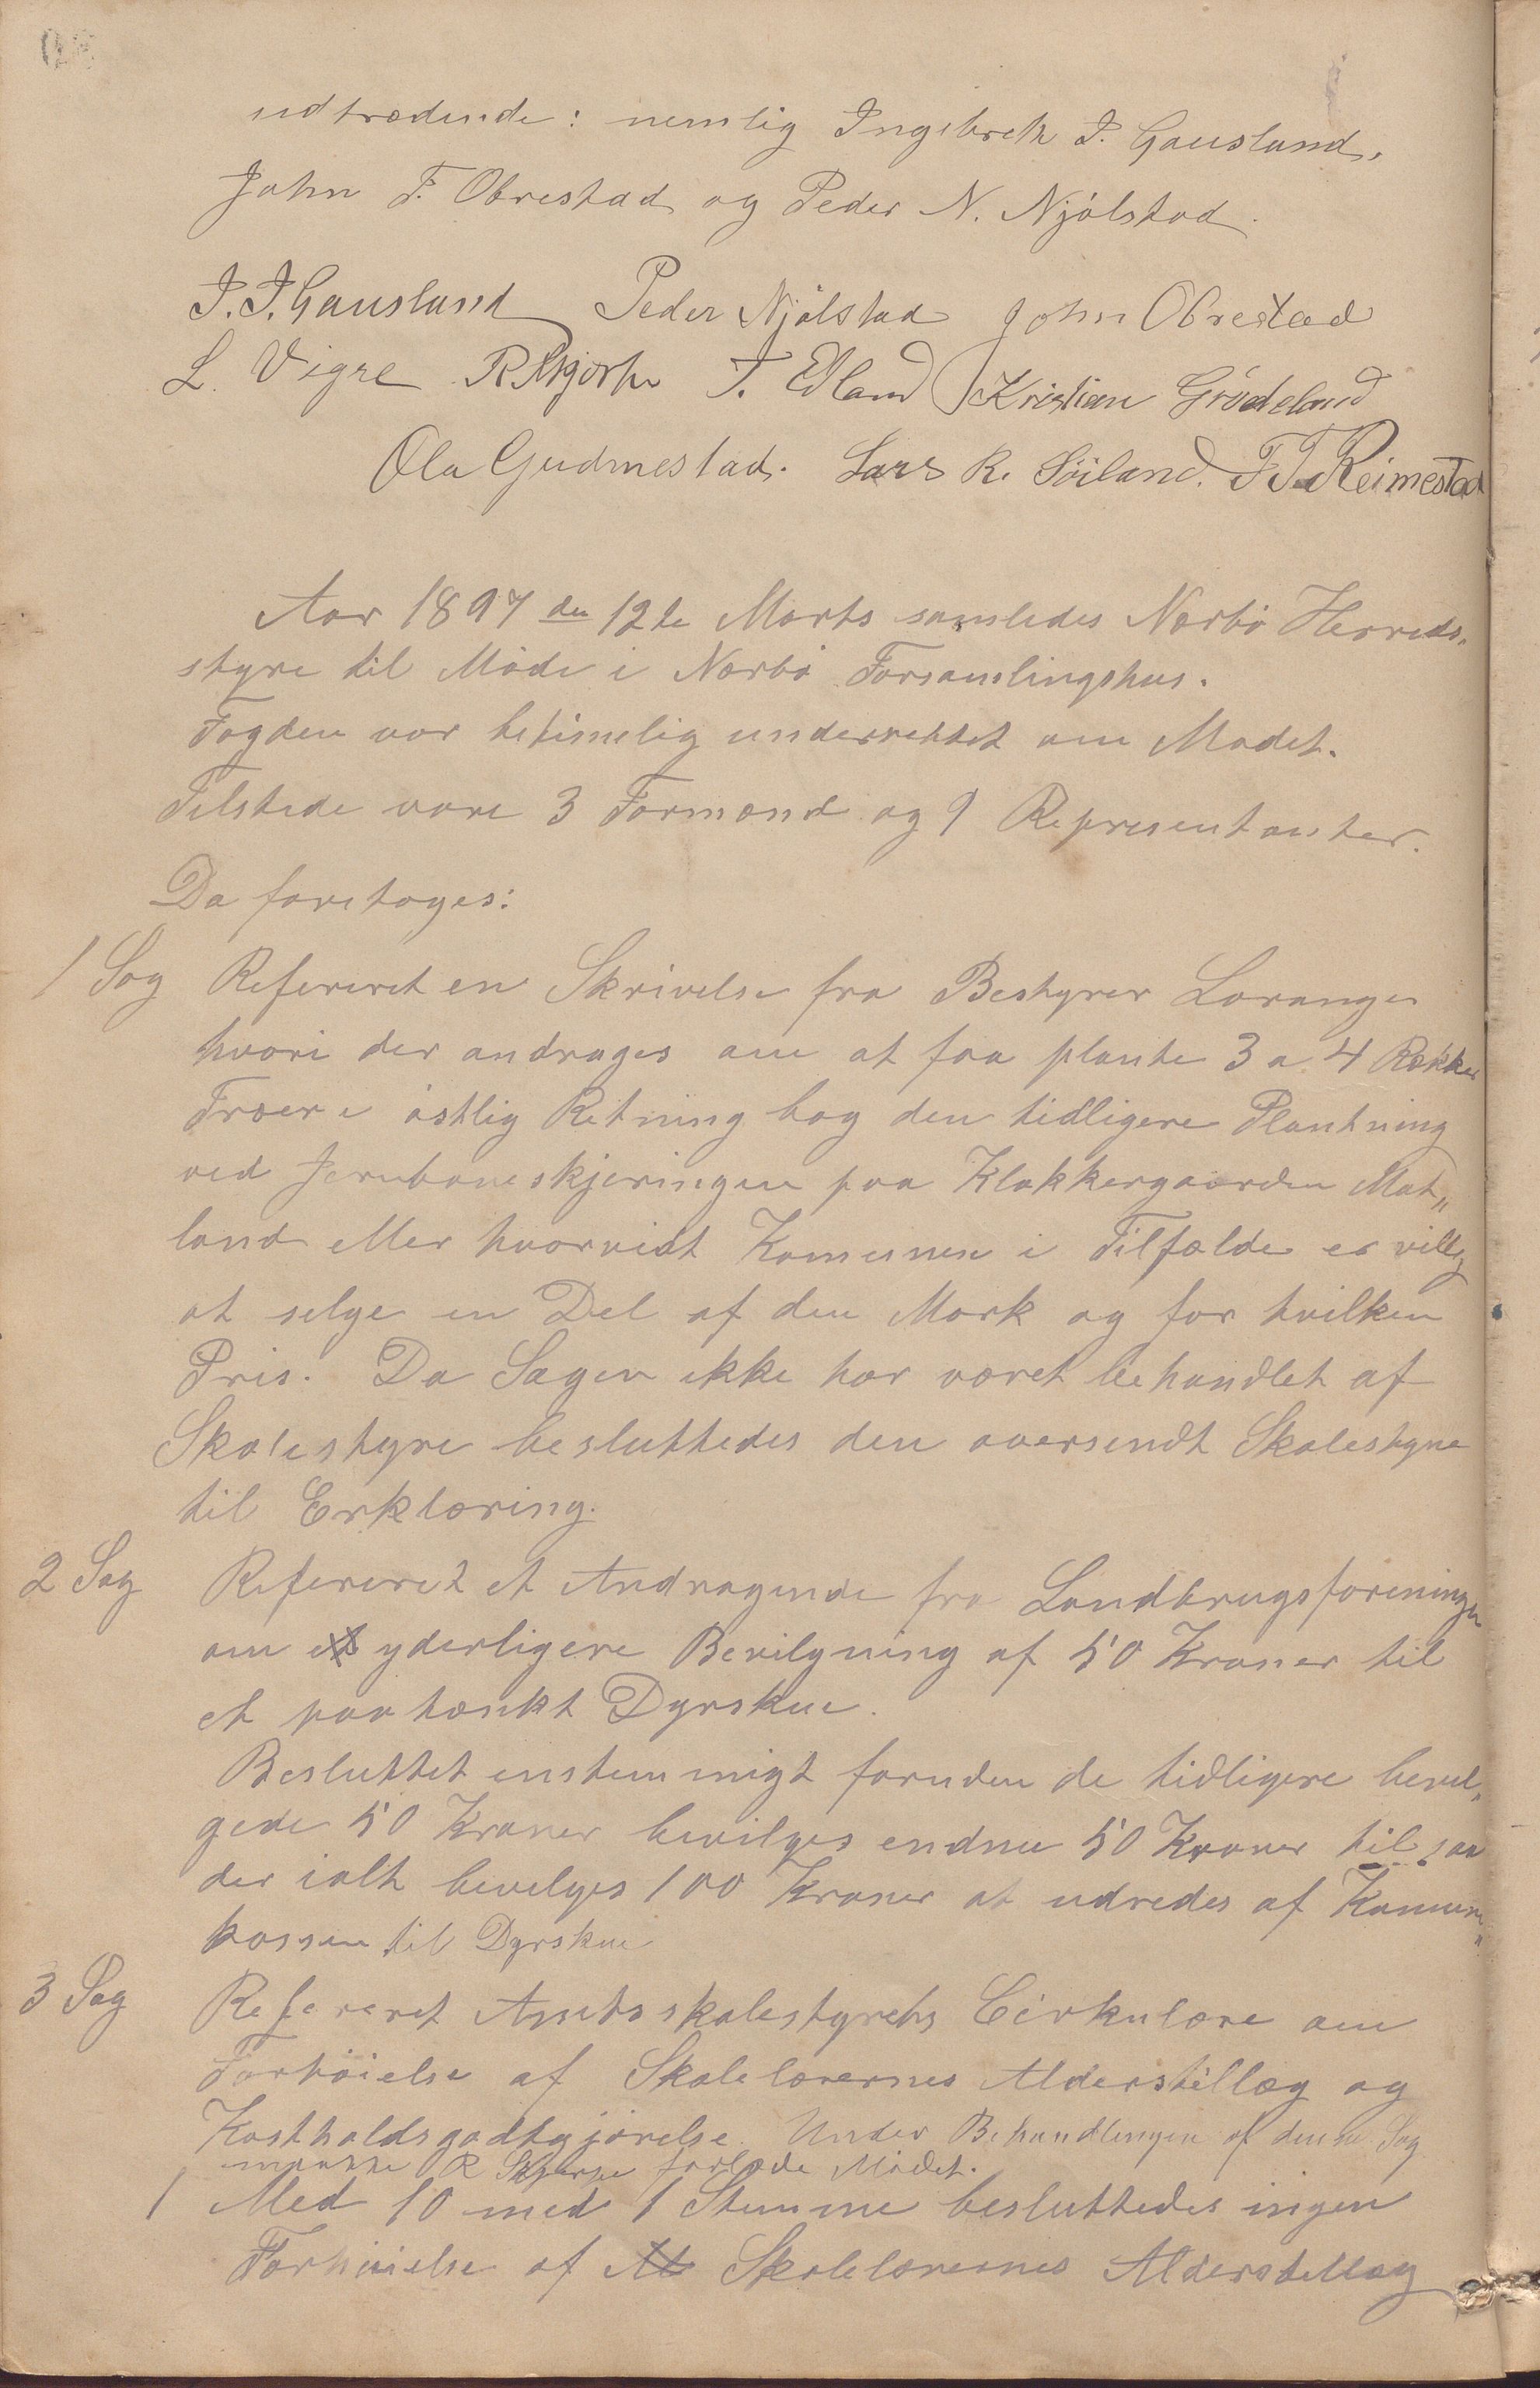 udtrædende: nemlig Ingebreth I. Gausland,
John T. Obrestad og Peder N. Njólstad.
I. I. Gausland Peder Njólstad John Obrestad
L. Vigre R Skjørpe T. Edland Kristian Grødeland
Ola Gudmestad. Lars R. Söiland. T T. Reimestad
Aar 1897 den 12te Marts samledes Nærbö Herreds„
styre til Möde i Nærbö Forsamlingshus.
Fogden var betimelig underrettet om Mødet.
Tilstede vare 3 Formænd og 9 Representanter.
Da foretoges:
1 Sag Refereret en Skrivelse fra Bestyrer Lorange
hvori der andrages om at faa plante 3 a 4 Rækker
Træer i östlig Retning bag den tidligere Plantning
ved Jernbaneskjeringen paa Klokkergaarden Mot„
land eller hvorvidt Komunen i Tilfælde er villig
at selge en Del af den Mark og for hvilken
Pris. Da Sagen ikke har været behandlet af
Skolestyre besluttedes den oversendt Skolestyre
til Erklæring.
2 Sag Refereret et Andragende fra Landbrugsforeningen
om et yderligere Bevilgning af 50 Kroner til
et paatænkt Dyrskue.
Besluttet enstemmigt foruden de tidligere bevil„
gede 50 Kroner bevilges endnu 50 Kroner til saa
der ialt bevelges 100 Kroner at udredes af Komune„
kassen til Dyrskue
3 Sag Refereret Amtsskolestyrets Cirkulære om
Forhöielse af Skolelærernes Alderstillæg og
Kostholdsgodtgjörelse. Under Behandlingen af denne Sag
maatte R Skjørpe forlade Mödet.
1 Med 10 med 1 Stemme besluttedes ingen
Forhöielse af Al Skolelærernes Alderstillæg